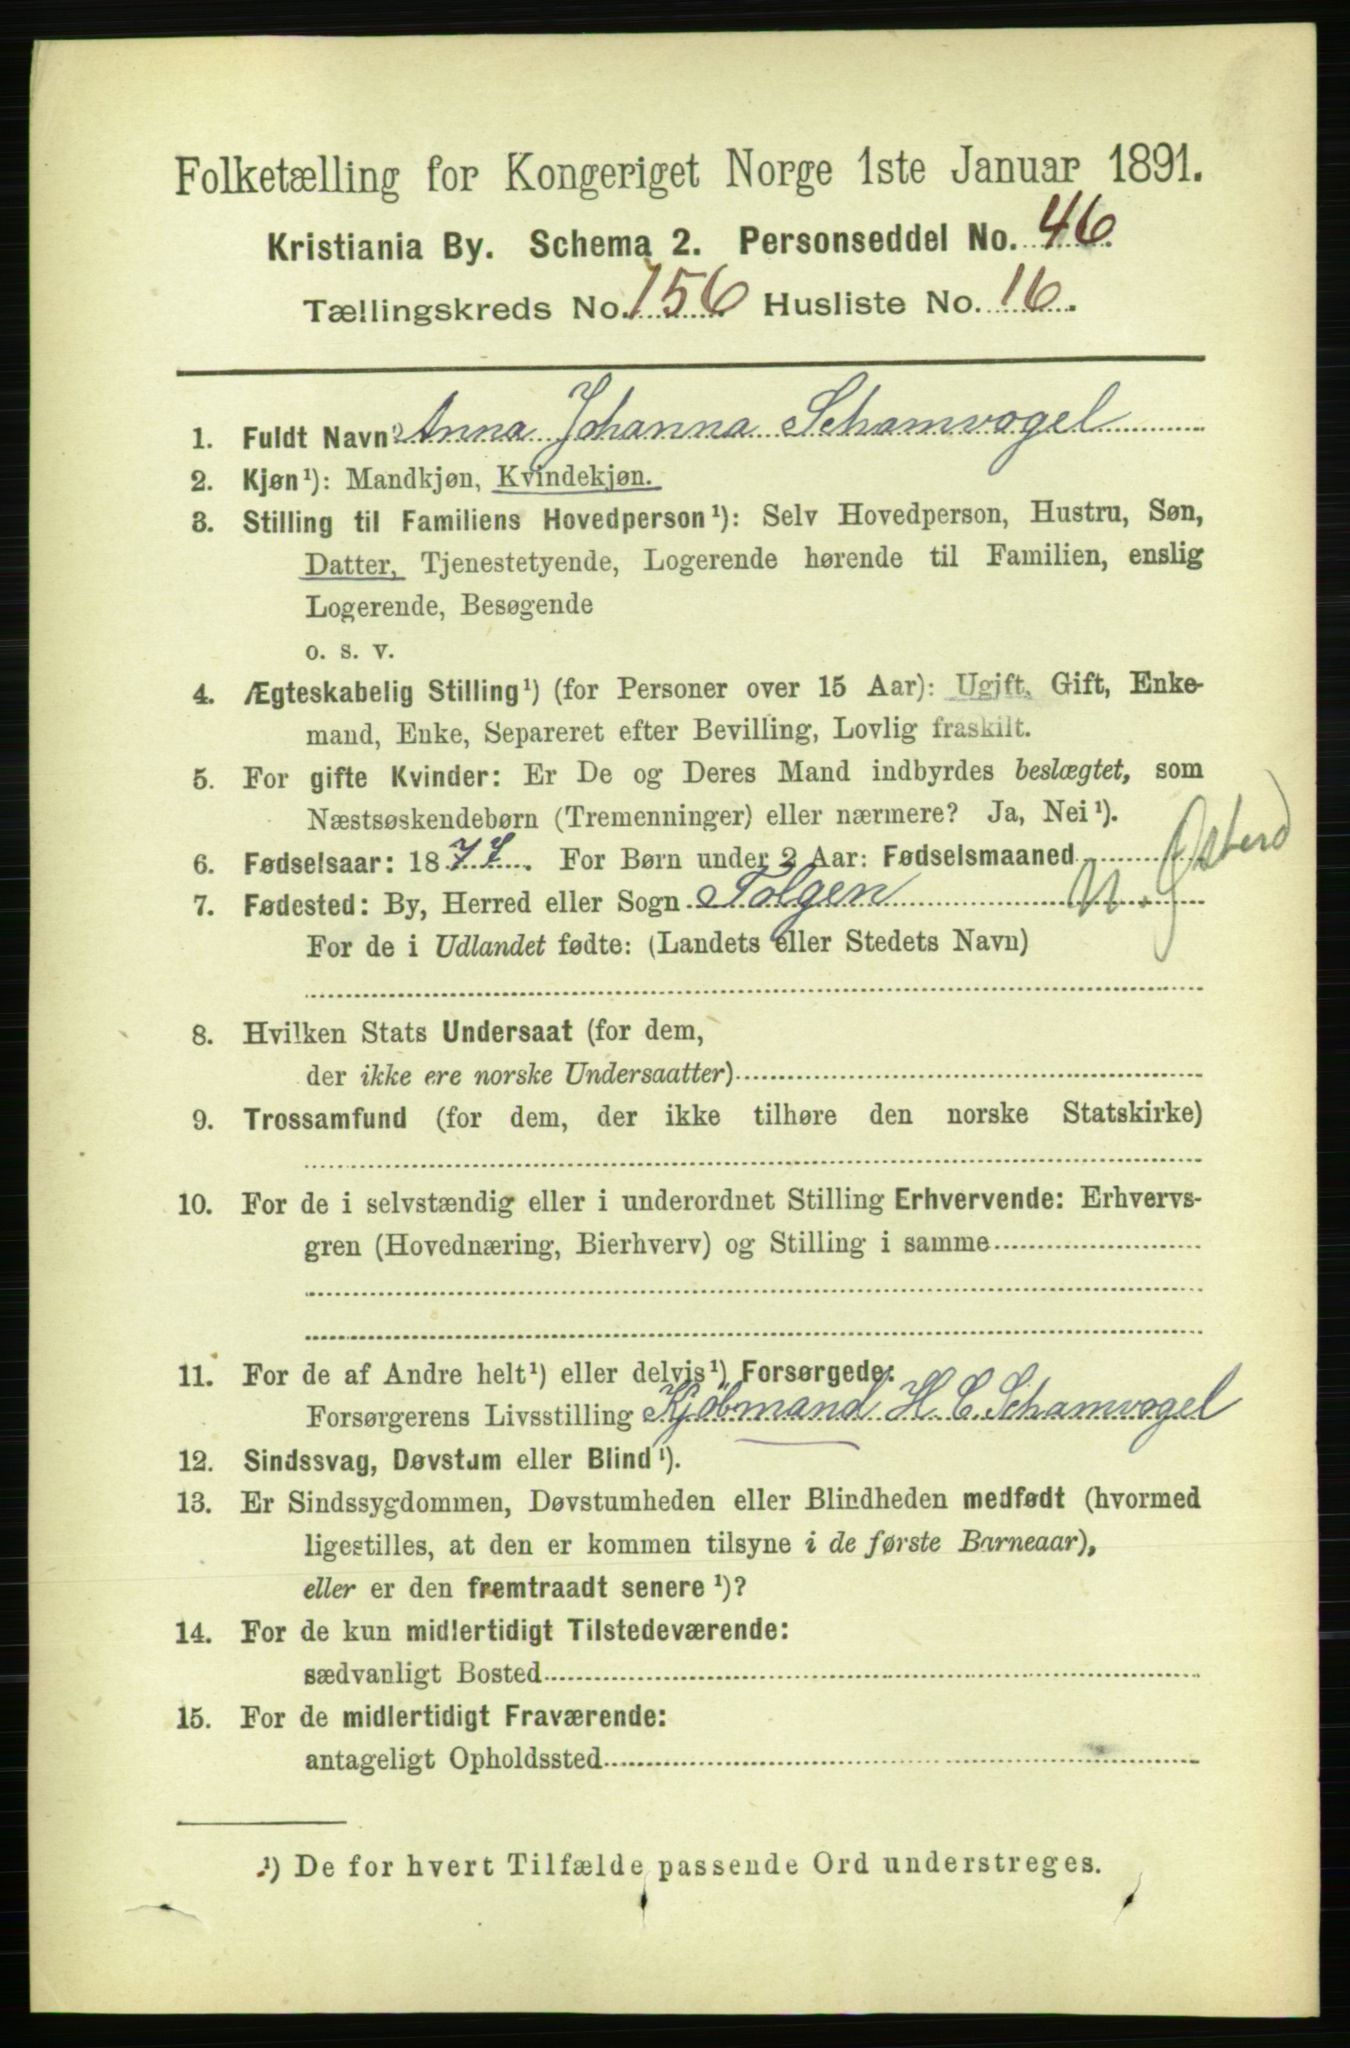 Folketælling for Kongeriget Norge 1ste Januar 1891.
Kristiania By. Schema 2. Personseddel No. 46.
Tællingskreds No. 156 Husliste No. 16.
1. Fuldt Navn: Anna Johanna Schamvogel
2. Kjøn¹): Mandkjøn, Kvindekjøn.
3. Stilling til Familiens Hovedperson¹): Selv Hovedperson, Hustru, Søn,
Datter, Tjenestetyende, Logerende hørende til Familien, enslig
Logerende, Besøgende
o. s. v.
4. Ægteskabelig Stilling¹) (for Personer over 15 Aar): Ugift, Gift, Enke-
mand, Enke, Separeret efter Bevilling, Lovlig fraskilt.
5. For gifte Kvinder: Er De og Deres Mand indbyrdes beslægtet, som
Næstsøskendebørn (Tremenninger) eller nærmere? Ja, Nei¹).
6. Fødselsaar: 1877. For Børn under 2 Aar: Fødselsmaaned
7. Fødested: By, Herred eller Sogn Tolgen N. Østerd
For de i Udlandet fødte: (Landets eller Stedets Navn)
8. Hvilken Stats Undersaat (for dem,
der ikke ere norske Undersaatter)
9. Trossamfund (for dem, der ikke tilhøre den norske Statskirke)
10. For de i selvstændig eller i underordnet Stilling Erhvervende: Erhvervs-
gren (Hovednæring, Bierhverv) og Stilling i samme
11. For de af Andre helt¹) eller delvis¹) Forsørgede:
Forsørgerens Livsstilling Kjöbmand H. C. Schamvogel
12. Sindssvag, Døvstum eller Blind¹).
13. Er Sindssygdommen, Døvstumheden eller Blindheden medfødt (hvormed
ligestilles, at den er kommen tilsyne i de første Barneaar),
eller er den fremtraadt senere¹)?
14. For de kun midlertidigt Tilstedeværende:
sædvanligt Bosted
15. For de midlertidigt Fraværende:
antageligt Opholdssted
¹) De for hvert Tilfælde passende Ord understreges.